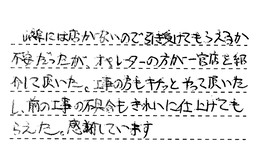 には店がないので引き受けてもらえるか
不安だったが、オペレーターの方が一宮店を紹
介して頂いた。工事の方もキチッとやって頂い
たし、前の工事の不具合もきれいに仕上げても
らえた。感謝しています